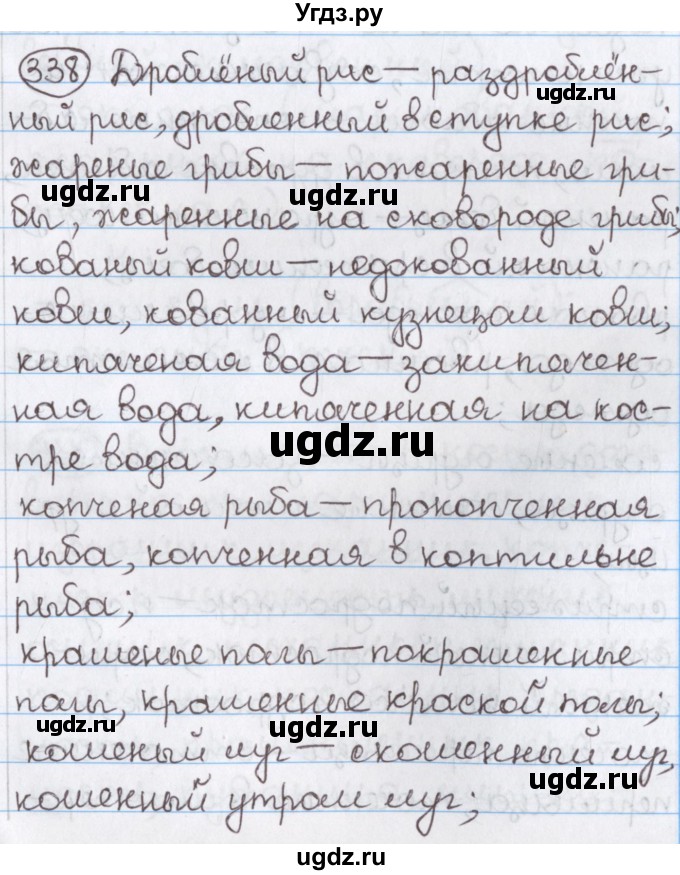 Угдз.ру
338 Дроблёный рис — раздроблен-
ugdz.ru
ный рис, дробленный в ступке рис;
жареные грибы — пожаренные гри-
ugdz.ru ugdz.ru
бы, жаренные на сковороде грибы;
кованый ковш — недокованный
ковш, кованный кузнецом ковш;
кипяченая вода — закипячен-
ная вода, кипяченная на кос-
ugdz.ru
тре вода;
копченая рыба — прокопченная
рыба, копченная в коптильне
рыба;
крашеные полы — покрашенные
полы, крашенные краской полы;
ugdz.ru ugdz.ru
кошеный луг — скошенный луг,
ugdz.ru
кошенный утром луг;
ugdz.ru